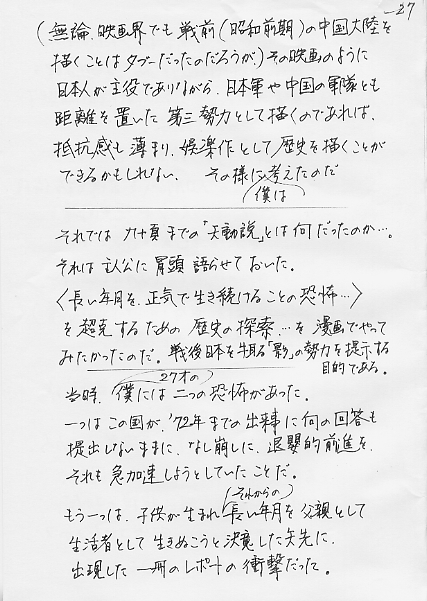 —27
(無論、映画界でも戦前(昭和前期)の中国大陸を
描くことはタブーだったのだろうが)その映画のように
日本人が主役でありながら、日本軍や中国の軍隊とも
距離を置いた第三勢力として描くのであれば、
抵抗感も薄まり、娯楽作として歴史を描くことが
できるかもしれない、その様に考えたのだ
(僕は
それでは 九十頁までの「天動説」とは何だったのか…。
それは主人公に冒頭語らせておいた。
〈長い年月を、正気で生き続けることの恐怖…〉
を超克するための歴史の探索…を漫画でやって
みたかったのだ。戦後日本を牛耳る「影」の勢力を提示する
目的である。
27才の
当時、僕には二つの恐怖があった。
一つはこの国が、'72年までの出来事に何の回答も
提出しないままに、なし崩しに、退嬰的前進を、
それも急加速しようとしていたことだ。
(それからの)
もう一つは、子供が生まれ長い年月を父親として
生活者として生きぬこうと決意した矢先に、
出現した一冊のレポートの衝撃だった。